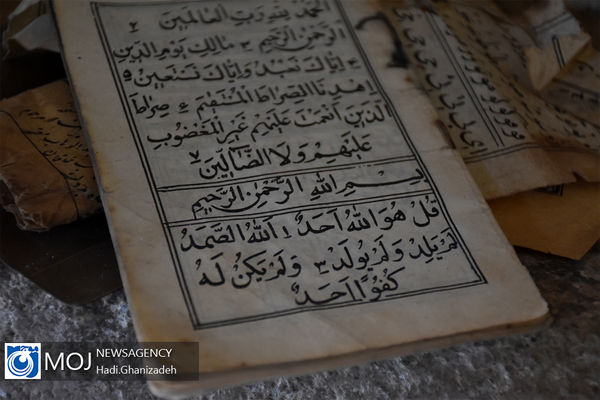 اَلْحَمْدُ لِلّٰهِ رَبِّ الْعَالَمِينَ ٢
الرَّحْمٰنِ الرَّحِيمِ ٣ مَالِكِ يَوْمِ الدِّينِ
٤ اِيَّاكَ نَعْبُدُ وَاِيَّاكَ نَسْتَعِينُ ٥
اِهْدِنَا الصِّرَاطَ الْمُسْتَقِيمَ ٦ صِرَاطَ
الَّذِينَ اَنْعَمْتَ عَلَيْهِمْ غَيْرِ الْمَغْضُوبِ
عَلَيْهِمْ وَلَا الضَّالِّينَ ٧
بِسْمِ اللّٰهِ الرَّحْمٰنِ الرَّحِيمِ
قُلْ هُوَ اللّٰهُ اَحَدٌ ١ اَللّٰهُ الصَّمَدُ
لَمْ يَلِدْ وَلَمْ يُولَدْ ٣ وَلَمْ يَكُنْ لَهُ
كُفُوًا اَحَدٌ
MOJ NEWSAGENCY
Hadi.Ghanizadeh